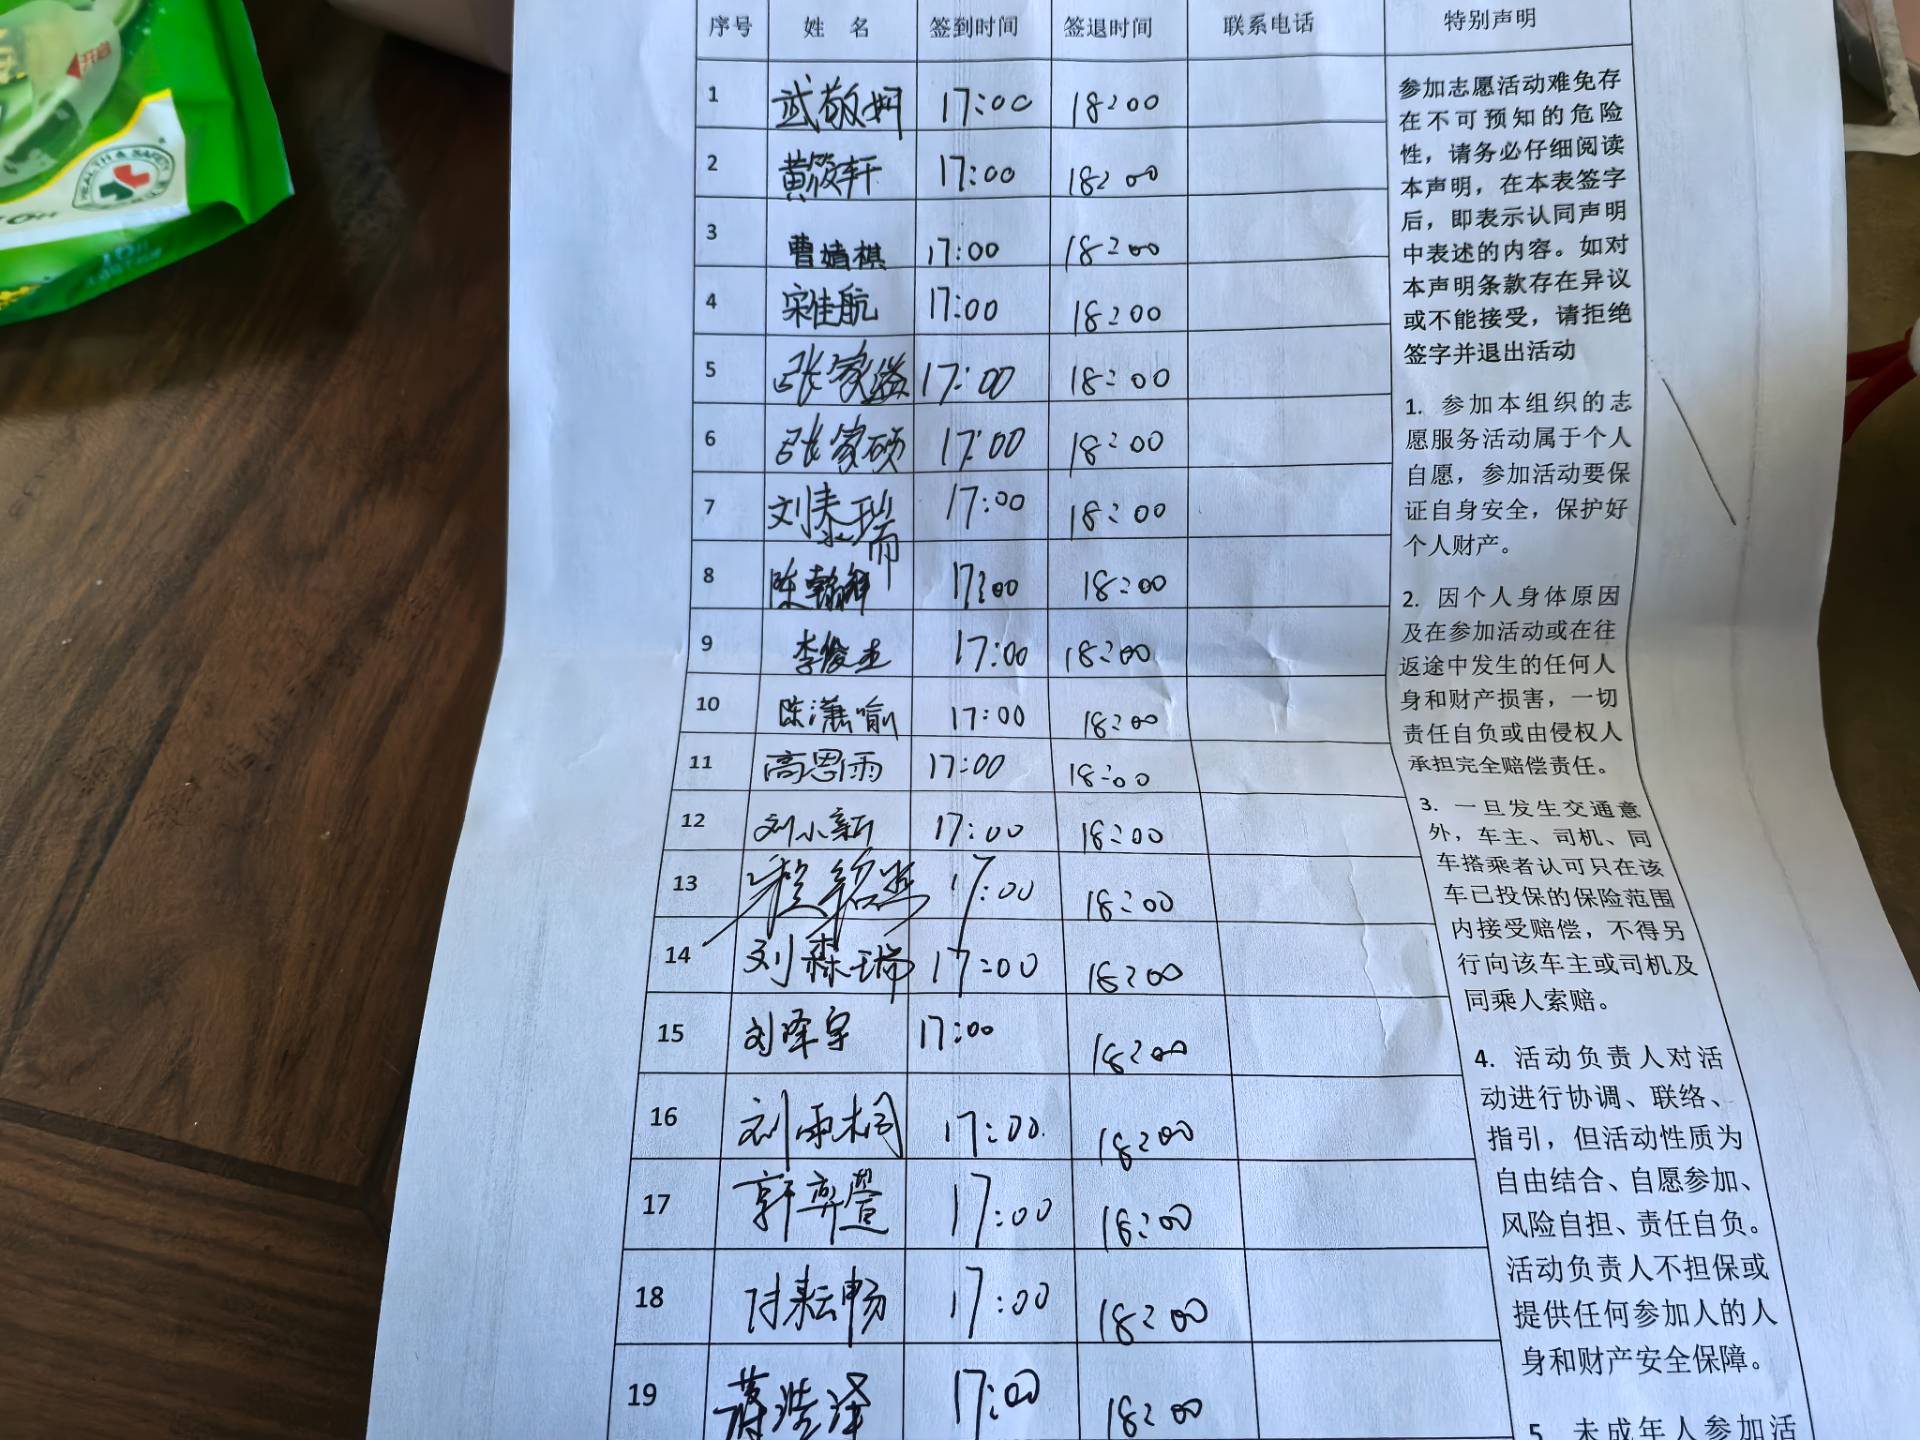 开启
HEALTH & SAFETY
序号 姓 名 签到时间 签退时间 联系电话 特别声明
1 武敬妍 17:00 18:00
2 黄筱轩 17:00 18:00
3 曹婧祺 17:00 18:00
4 宋佳航 17:00 18:00
5 张家溢 17:00 18:00
6 张家硕 17:00 18:00
7 刘泰瑞 17:00 18:00
8 陈翰 17:00 18:00
9 李俊 17:00 18:00
10 陈潇喻 17:00 18:00
11 高恩雨 17:00 18:00
12 刘小新 17:00 18:00
13 17:00 18:00
14 刘森瑞 17:00 18:00
15 刘泽宇 17:00 18:00
16 刘雨桐 17:00 18:00
17 郭弈萱 17:00 18:00
18 付耘畅 17:00 18:00
19 蒋浩泽 17:00 18:00
参加志愿活动难免存
在不可预知的危险
性，请务必仔细阅读
本声明，在本表签字
后，即表示认同声明
中表述的内容。如对
本声明条款存在异议
或不能接受，请拒绝
签字并退出活动
1. 参加本组织的志
愿服务活动属于个人
自愿，参加活动要保
证自身安全，保护好
个人财产。
2. 因个人身体原因
及在参加活动或在往
返途中发生的任何人
身和财产损害，一切
责任自负或由侵权人
承担完全赔偿责任。
3. 一旦发生交通意
外，车主、司机、同
车搭乘者认可只在该
车已投保的保险范围
内接受赔偿，不得另
行向该车主或司机及
同乘人索赔。
4. 活动负责人对活
动进行协调、联络、
指引，但活动性质为
自由结合、自愿参加、
风险自担、责任自负。
活动负责人不担保或
提供任何参加人的人
身和财产安全保障。
5. 未成年人参加活